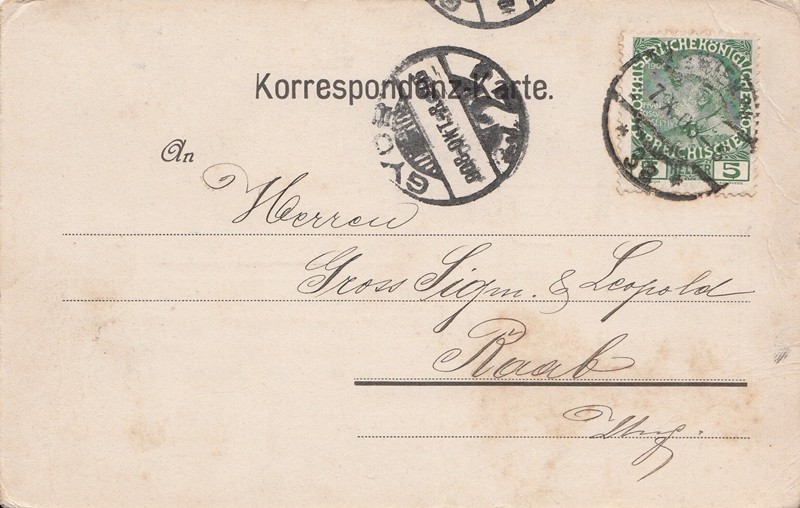 Korrespondenz-Karte.
KAISERLICHE KÖNIGLICHE
ÖSTERREICHISCHE
5 HELLER 5
GYŐR
908 OKT
38
An
Herren
Gross Sigm. & Leopold
Raab
Ung.